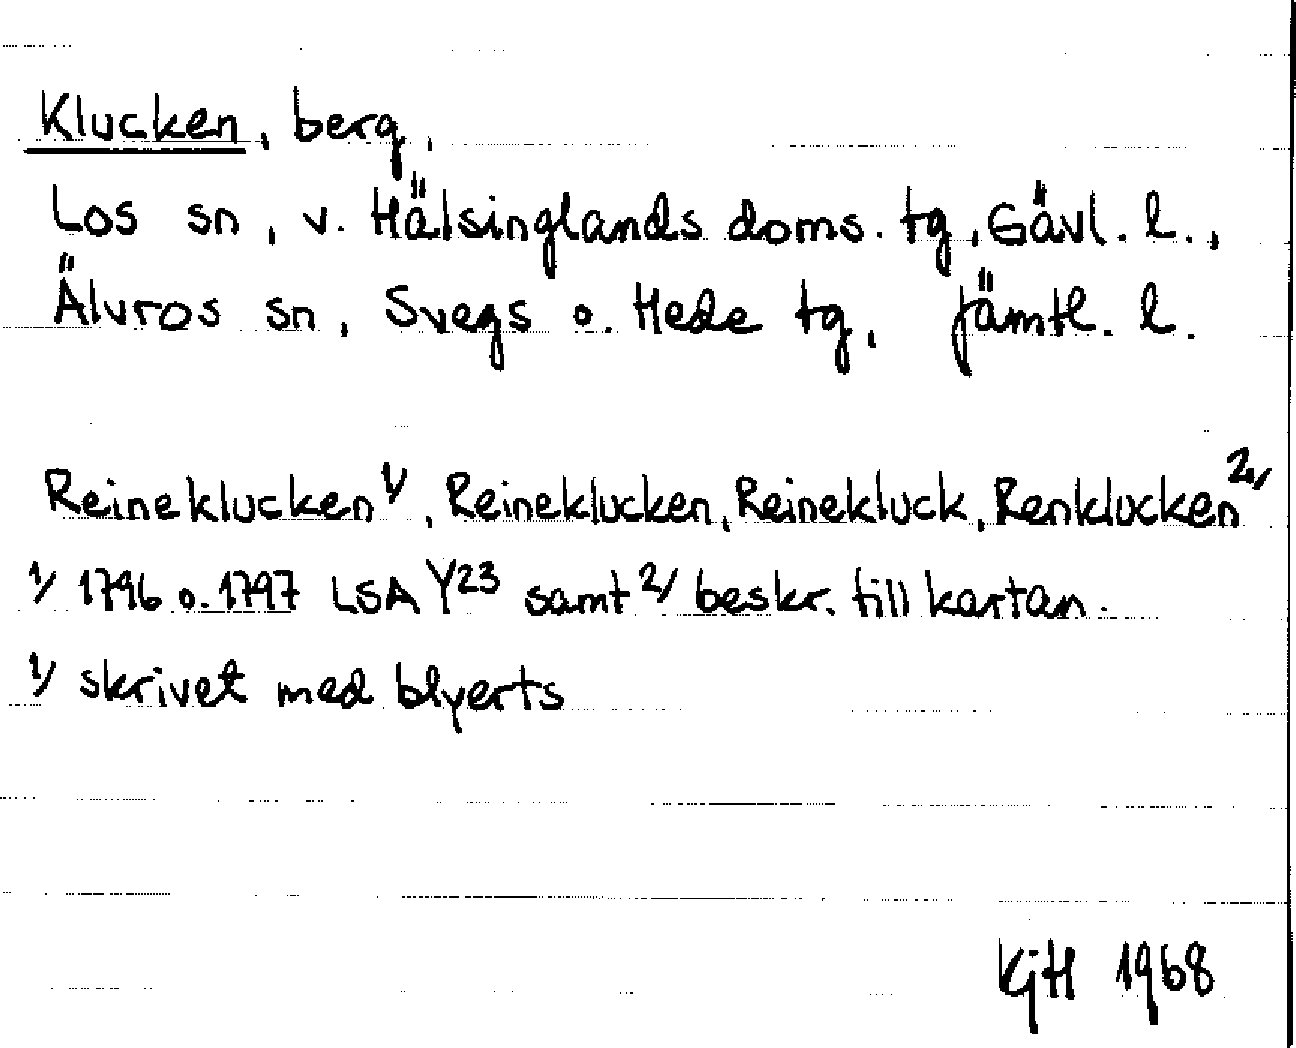 Klucken, berg,
Los sn, v. Hälsinglands doms. tg, Gävl. l.,
Älvros sn, Svegs o. Hede tg, Jämtl. l.
Reineklucken 1/, Reineklucken, Reinekluck, Renklucken 2/
1/ 1796 o. 1797 LSA Y23 samt 2/ beskr. till kartan.
1/ skrivet med blyerts
KjH 1968